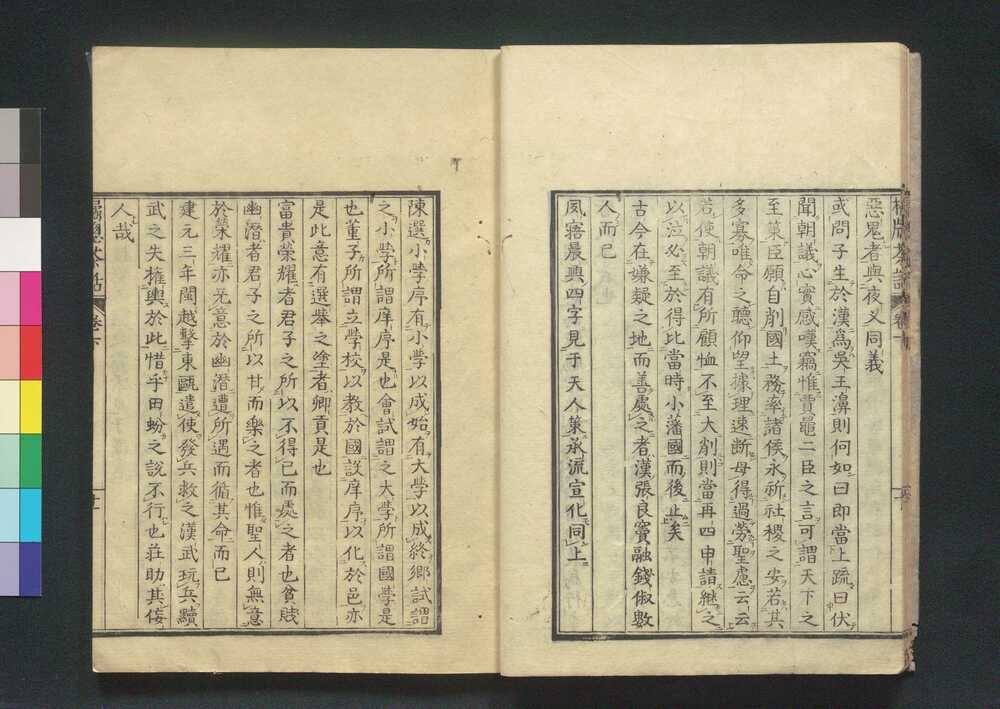 惡鬼者與夜叉同義
或問子生於漢爲吳王濞則何如曰卽當上疏曰伏
聞朝議心實感嘆竊惟賈鼂二臣之言可謂天下之
至策臣願自削國土務率諸侯永祈社稷之安若其
多寡唯命之聽仰望據理速斷毋得過勞聖慮云云
若使朝議有所顧恤不至大削則當再四申請繼之
以泣必至於得比當時小藩國而後止矣
古今在嫌疑之地而善處之者漢張良竇融錢俶數
人而已
夙寤晨興四字見于天人策承流宣化同上
陳選小學序有小學以成始有大學以成終鄉試謂
之小學所謂庠序是也會試謂之大學所謂國學是
也董子所謂立學校以教於國設庠序以化於邑亦
是此意有選舉之塗者鄉貢是也
富貴榮耀者君子之所以不得已而處之者也貧賤
幽潛者君子之所以甘而樂之者也惟聖人則無意
於榮耀亦无意於幽潛遭所遇而循其命而已
建元三年閩越擊東甌遣使發兵救之漢武玩兵黷
武之失權輿於此惜乎田蚡之說不行也莊助其佞
人哉